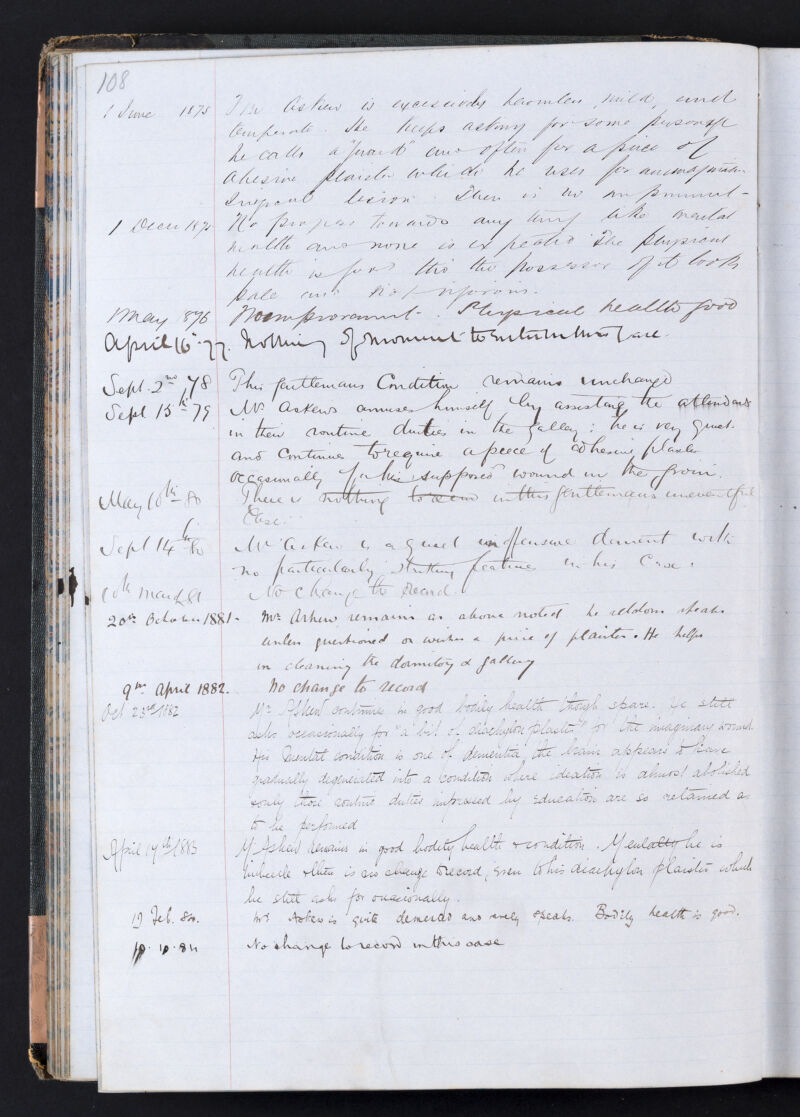 108
1 June 1875 Mr Askew is excessively harmless, mild, and
temperate. He keeps asking for some personage
he calls a "" and often for a piece of
adhesive plaister which he uses for an imaginary
surgical lesion. There is no improvement -
1 Decr 1875 No progress towards any thing like mental
health and none is expected. The physical
health is good tho the possessor of it looks
pale and not vigorous.
1 May 1876 No improvement. Physical health good
April 16. 77. Nothing of moment to enter in this case.
Sept. 2nd 78 This gentlemans Condition remains unchanged
Sept 15th 79 Mr Askew amuses himself by assisting the attendants
in their routine duties in the Gallery: he is very quiet
and continues to require a piece of adhesive plaster
occasionally for his "supposed" wound in the groin.
May 10th 80 There is nothing to in this gentlemans uneventful
Case.
Sept 14th 80 Mr Askew is a quiet inoffensive dement with
no particularly striking feature in his Case.
10th March 81 No change to record.
20th October 1881. Mr Askew remains as above noted he seldom speaks
unless questioned or wishes a piece of plaister. He helps
in cleaning the dormitory & gallery
9th April 1882. No change to record
Oct 23rd 1882 Mr Askew continues in good bodily health though spare. He still
asks occasionally for "a bit of diachylon plaster" for the imaginary wound.
His mental condition is one of dementia, the brain appears to have
gradually degenerated into a condition where ideation is almost abolished
& only those routine duties impressed by education are so retained as
to be performed
April 19th 1883 Mr Askew remains in good bodily health & condition. Mentally he is
imbecile & there is no change to record, even to his diachylon plaister which
he still asks for occasionally.
19 Feb. 84. Mr Askew is quite demented and rarely speaks. Bodily health is good.
10. 10. 84 No change to record in this case